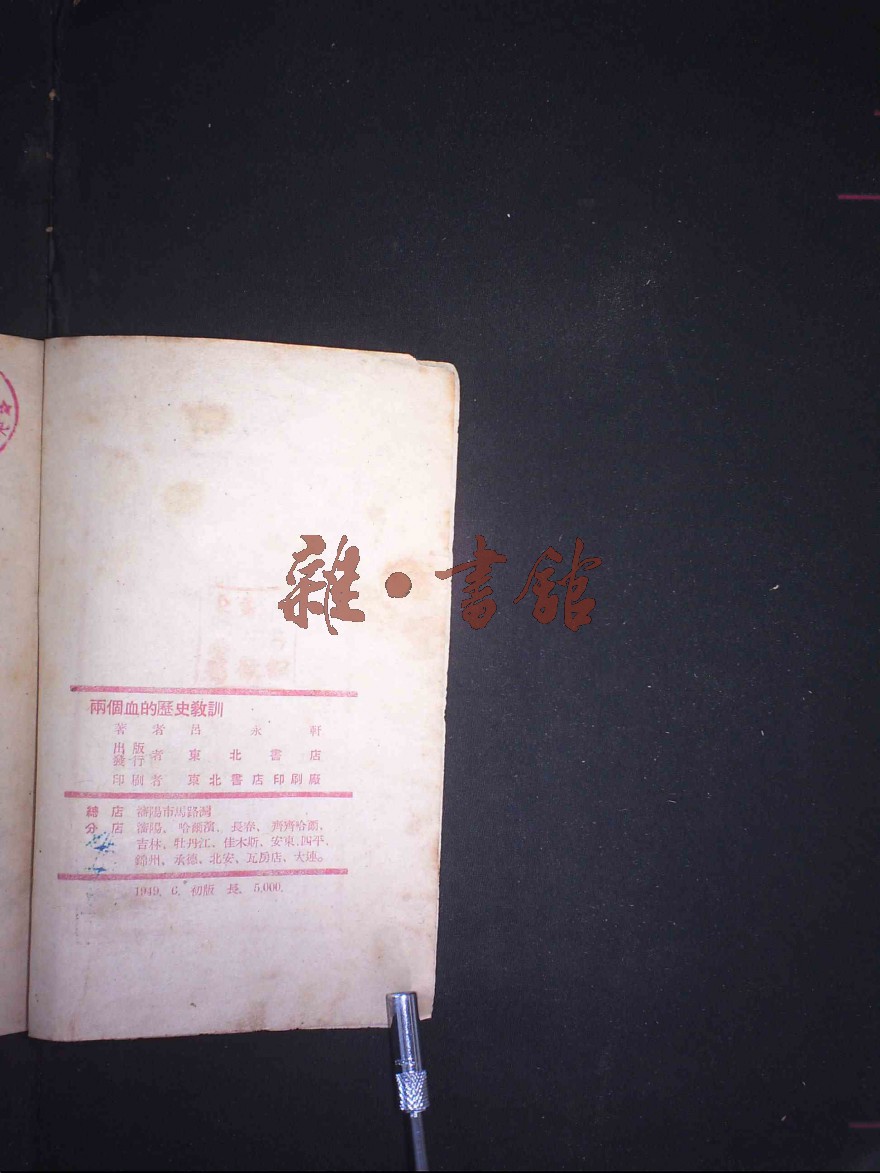 雜·書館
兩個血的歷史敎訓
著者 呂永軒
出版
發行者 東北書店
印刷者 東北書店印刷廠
總店 瀋陽市馬路灣
分店 瀋陽、哈爾濱、長春、齊齊哈爾、
吉林、牡丹江、佳木斯、安東、四平、
錦州、承德、北安、瓦房店、大連。
1949. 6. 初版 長. 5,000.